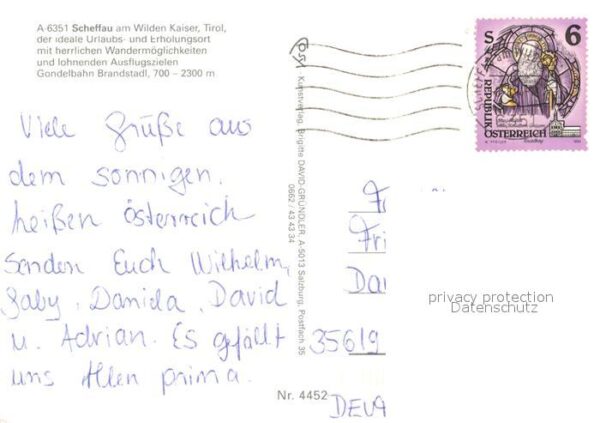 A-6351 Scheffau am Wilden Kaiser, Tirol,
der ideale Urlaubs- und Erholungsort
mit herrlichen Wandermöglichkeiten
und lohnenden Ausflugszielen
Gondelbahn Brandstadl, 700 – 2300 m
Viele Grüße aus
dem sonnigen,
heißen Österreich
senden Euch Wilhelm,
Gaby, Daniela, David
u. Adrian. Es gefällt
uns Allen prima.
Kunstverlag Brigitte DAVID-GRÜNDLER, A-5013 Salzburg, Postfach 35
0662 / 43 43 34
Nr. 4452
S 6
REPUBLIK
ÖSTERREICH
35619
privacy protection
Datenschutz